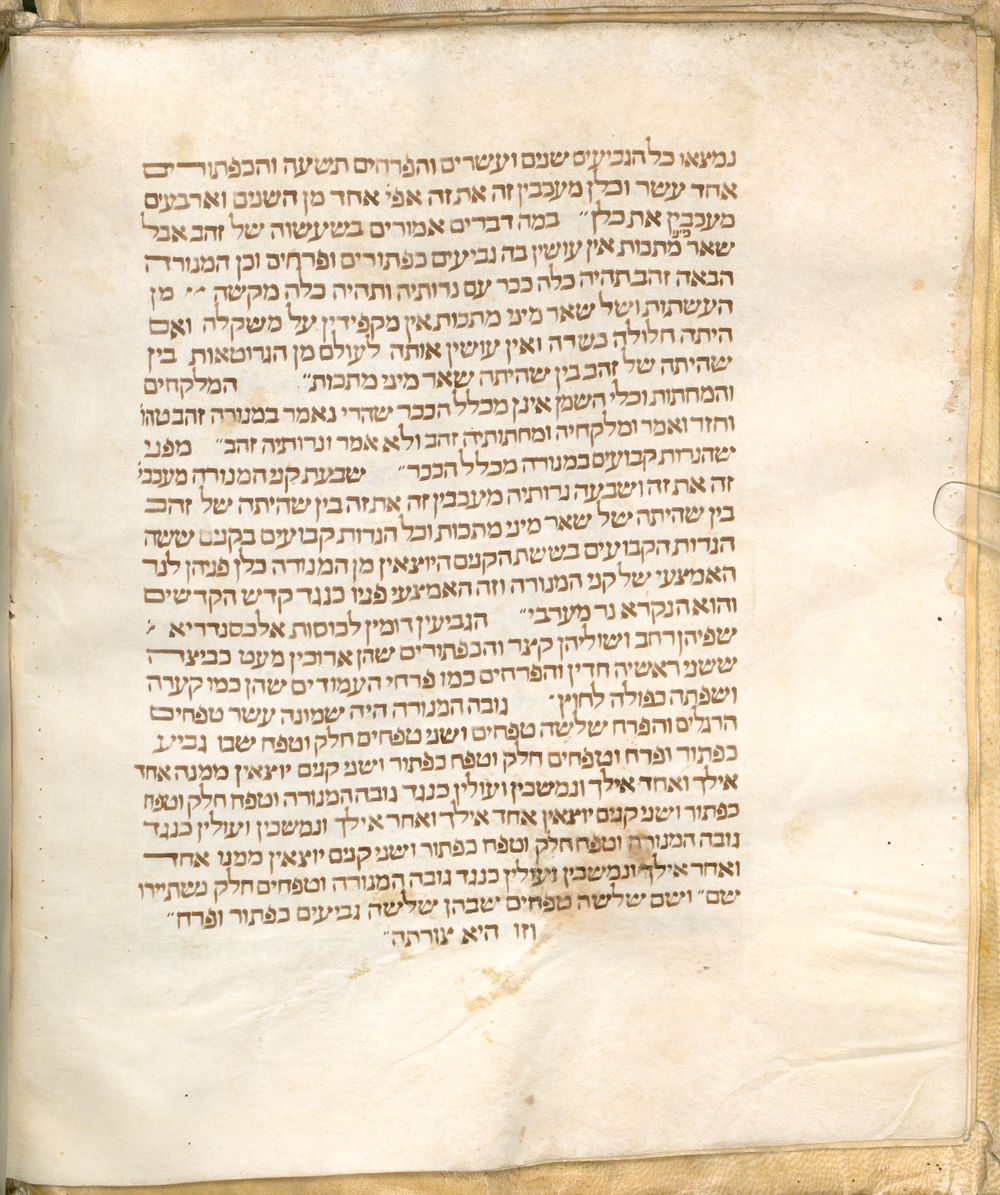 נמצאו כל הגביעים שנים ועשרים והפרחים תשעה והכפתורים
אחד עשר וכלן מעכבין זה את זה אפי' אחד מן השנים וארבעים
מעכבין את כלן״ במה דברים אמורים בשעשוה של זהב אבל
שאר מיני מתכות אין עושין בה גביעים כפתורים ופרחים וכן המנורה
הבאה זהב תהיה כלה ככר עם נרותיה ותהיה כלה מקשה ״ מן
העשתות ושל שאר מיני מתכות אין מקפידין על משקלה ואם
היתה חלולה כשרה ואין עושין אותה לעולם מן הגרוטאות בין
שהיתה של זהב בין שהיתה שאר מיני מתכות״ המלקחים
והמחתות וכלי השמן אינן מכלל הככר שהרי נאמר במנורה זהב טהו'
וחזר ואמר ומלקחיה ומחתותיה זהב ולא אמר ונרותיה זהב״ מפני
שהנרות קבועים במנורה מכלל הככר״ שבעת קני המנורה מעכבי'
זה את זה ושבעה נרותיה מעכבין זה את זה בין שהיתה של זהב
בין שהיתה של שאר מיני מתכות וכל הנרות קבועים בקנים ששה
הנרות הקבועים בששת הקנים היוצאין מן המנורה כלן פניהן לנר
האמצעי של קני המנורה וזה האמצעי פניו כנגד קדש הקדשים
והוא הנקרא נר מערבי״ הגביעין דומין לכוסות אלכסנדריא
שפיהן רחב ושוליהן קצר והכפתורים שהן ארוכין מעט כביצה
ששני ראשיה חדין והפרחים כמו פרחי העמודים שהן כמו קערה
ושפתה כפולה לחוץ״ גובה המנורה היה שמונה עשר טפחים
הרגלים והפרח שלשה טפחים ושני טפחים חלק וטפח שבו גביע
כפתור ופרח וטפחים חלק וטפח כפתור ושני קנים יוצאין ממנה אחד
אילך ואחד אילך ונמשכין ועולין כנגד גובה המנורה וטפח חלק וטפח
כפתור ושני קנים יוצאין אחד אילך ואחר אילך ונמשכין ועולין כנגד
גובה המנורה וטפח חלק וטפח כפתור ושני קנים יוצאין ממנו אחד
ואחר אילך ונמשכין ועולין כנגד גובה המנורה וטפחים חלק נשתיירו
שם״ ושם שלשה טפחים שבהן שלשה גביעים כפתור ופרח״
וזו היא צורתה״